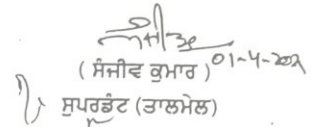 (ਸੰਜੀਵ ਕੁਮਾਰ) 01-4-202
ਸੁਪਰਡੰਟ (ਤਾਲਮੇਲ)